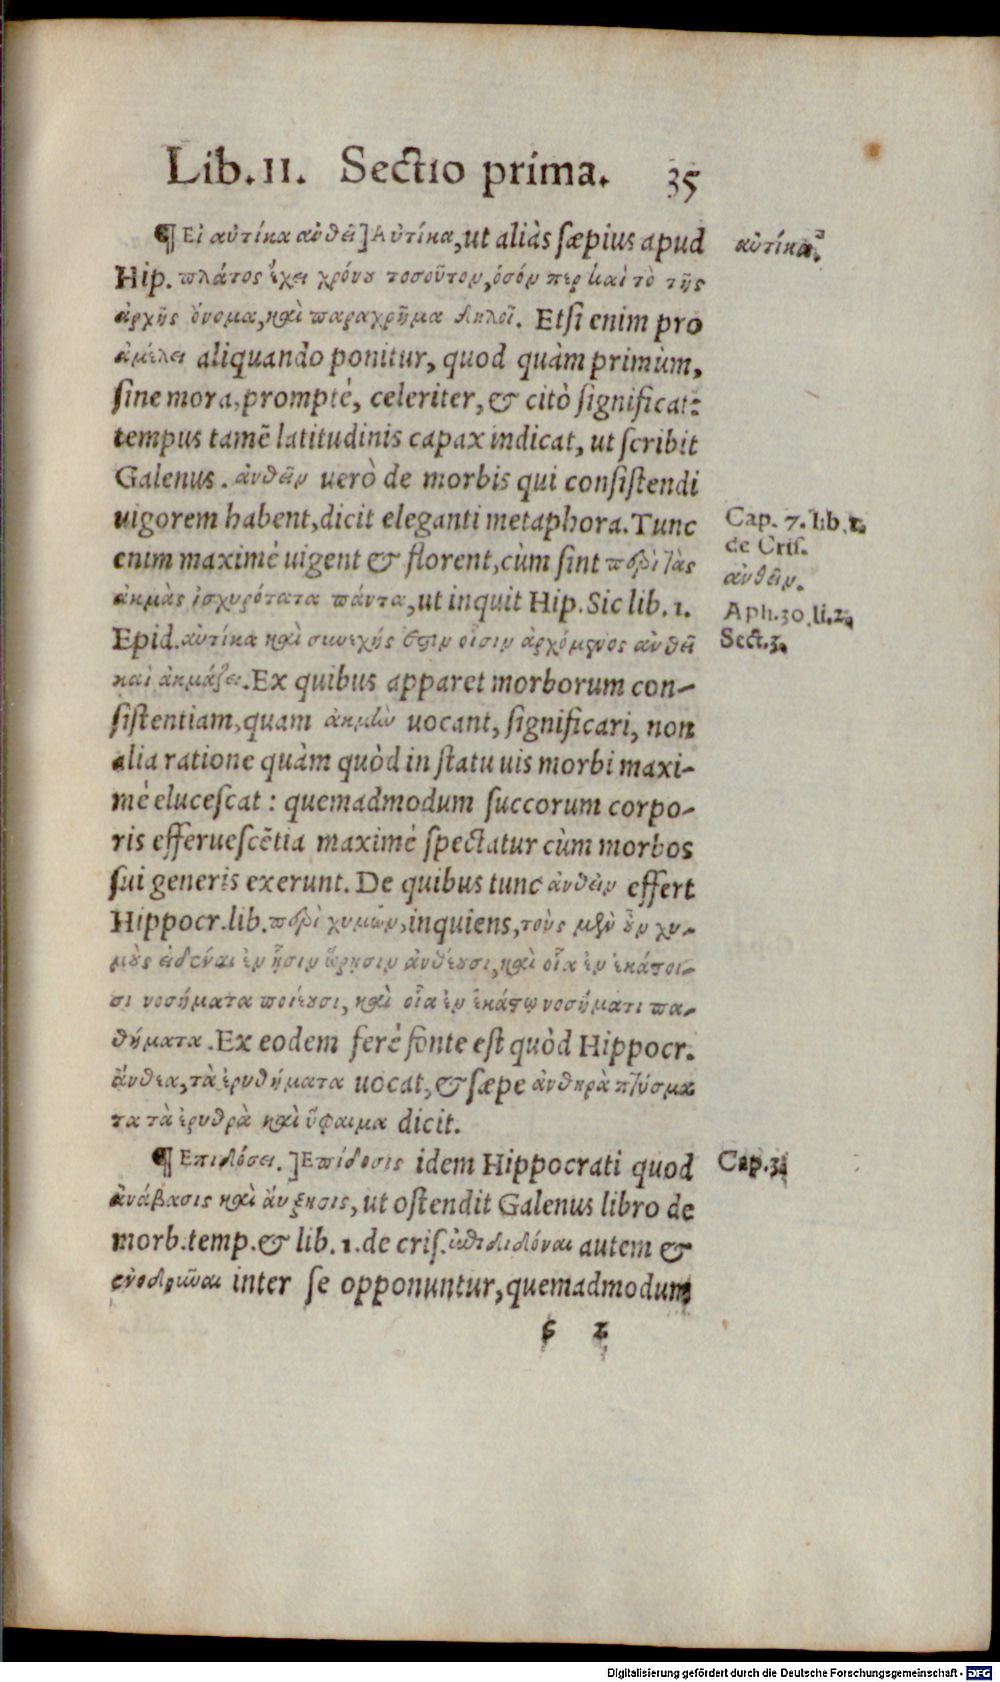 Lib.II. Sectio prima. 35
¶ Εἰ αὐτίκα ἀνθεῖ] Αὐτίκα, ut aliàs sæpius apud
αὐτίκα.
Hip. πλάτος ἔχει χρόνου τοσοῦτον, ὁσόν περ καὶ τὸ τῆς
ἀρχῆς ὄνομα, καὶ παραχρῆμα δηλοῖ. Etsi enim pro
ἀμέλει aliquando ponitur, quod quàm primùm,
sine mora, prompté, celeriter, & citò significat:
tempus tamē latitudinis capax indicat, ut scribit
Galenus. ἀνθεῖν uerò de morbis qui consistendi
uigorem habent, dicit eleganti metaphora. Tunc
Cap. 7. lib. 1.
de Cris.
enim maximè uigent & florent, cùm sint περὶ τὰς
ἀνθεῖν.
ἀκμὰς ἰσχυρότατα πάντα, ut inquit Hip. Sic lib. 1.
Aph. 30. li. 2.
Sect. 3.
Epid. αὐτίκα καὶ συνεχής ἔστιν οἷσιν ἀρχόμενος ἀνθεῖ
καὶ ἀκμάζει. Ex quibus apparet morborum con-
sistentiam, quam ἀκμὴν uocant, significari, non
alia ratione quàm quòd in statu uis morbi maxi-
mè elucescat: quemadmodum succorum corpo-
ris efferuescētia maximè spectatur cùm morbos
sui generis exerunt. De quibus tunc ἀνθεῖν effert
Hippocr. lib. περὶ χυμῶν, inquiens, τοὺς μὲν οὖν χυ-
μοὺς εἰδέναι ἐν ᾗσιν ὥρῃσιν ἀνθέουσι, καὶ οἷα ἐν ἑκάστοι-
σι νοσήματα ποιέουσι, καὶ οἷα ἐν ἑκάστῳ νοσήματι πα-
θήματα. Ex eodem ferè fonte est quòd Hippocr.
ἄνθεα, τὰ ἐρυθήματα uocat, & sæpe ἀνθηρὰ πτύσμα
τα τὰ ἐρυθρὰ καὶ ὕφαιμα dicit.
¶ Επιδόσει.] Επίδοσις idem Hippocrati quod
Cap. 3.
ἀνάβασις καὶ ἄυξησις, ut ostendit Galenus libro de
morb. temp. & lib. 1. de cris. ἐπιδιδόναι autem &
ἐνδοῦναι inter se opponuntur, quemadmodum
Digitalisierung gefördert durch die Deutsche Forschungsgemeinschaft - DFG